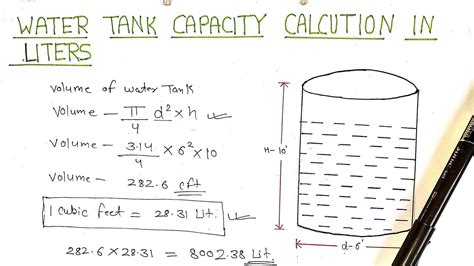 WATER TANK CAPACITY CALCUTION IN
LITERS
Volume of water Tank
Volume — π/4 d² × h
Volume — 3.14/4 × 6² × 10
Volume — 282.6 cft
1 cubic feet = 28.31 Lit.
282.6 × 28.31 = 8002.38 Lit.
H-10'
d-6'